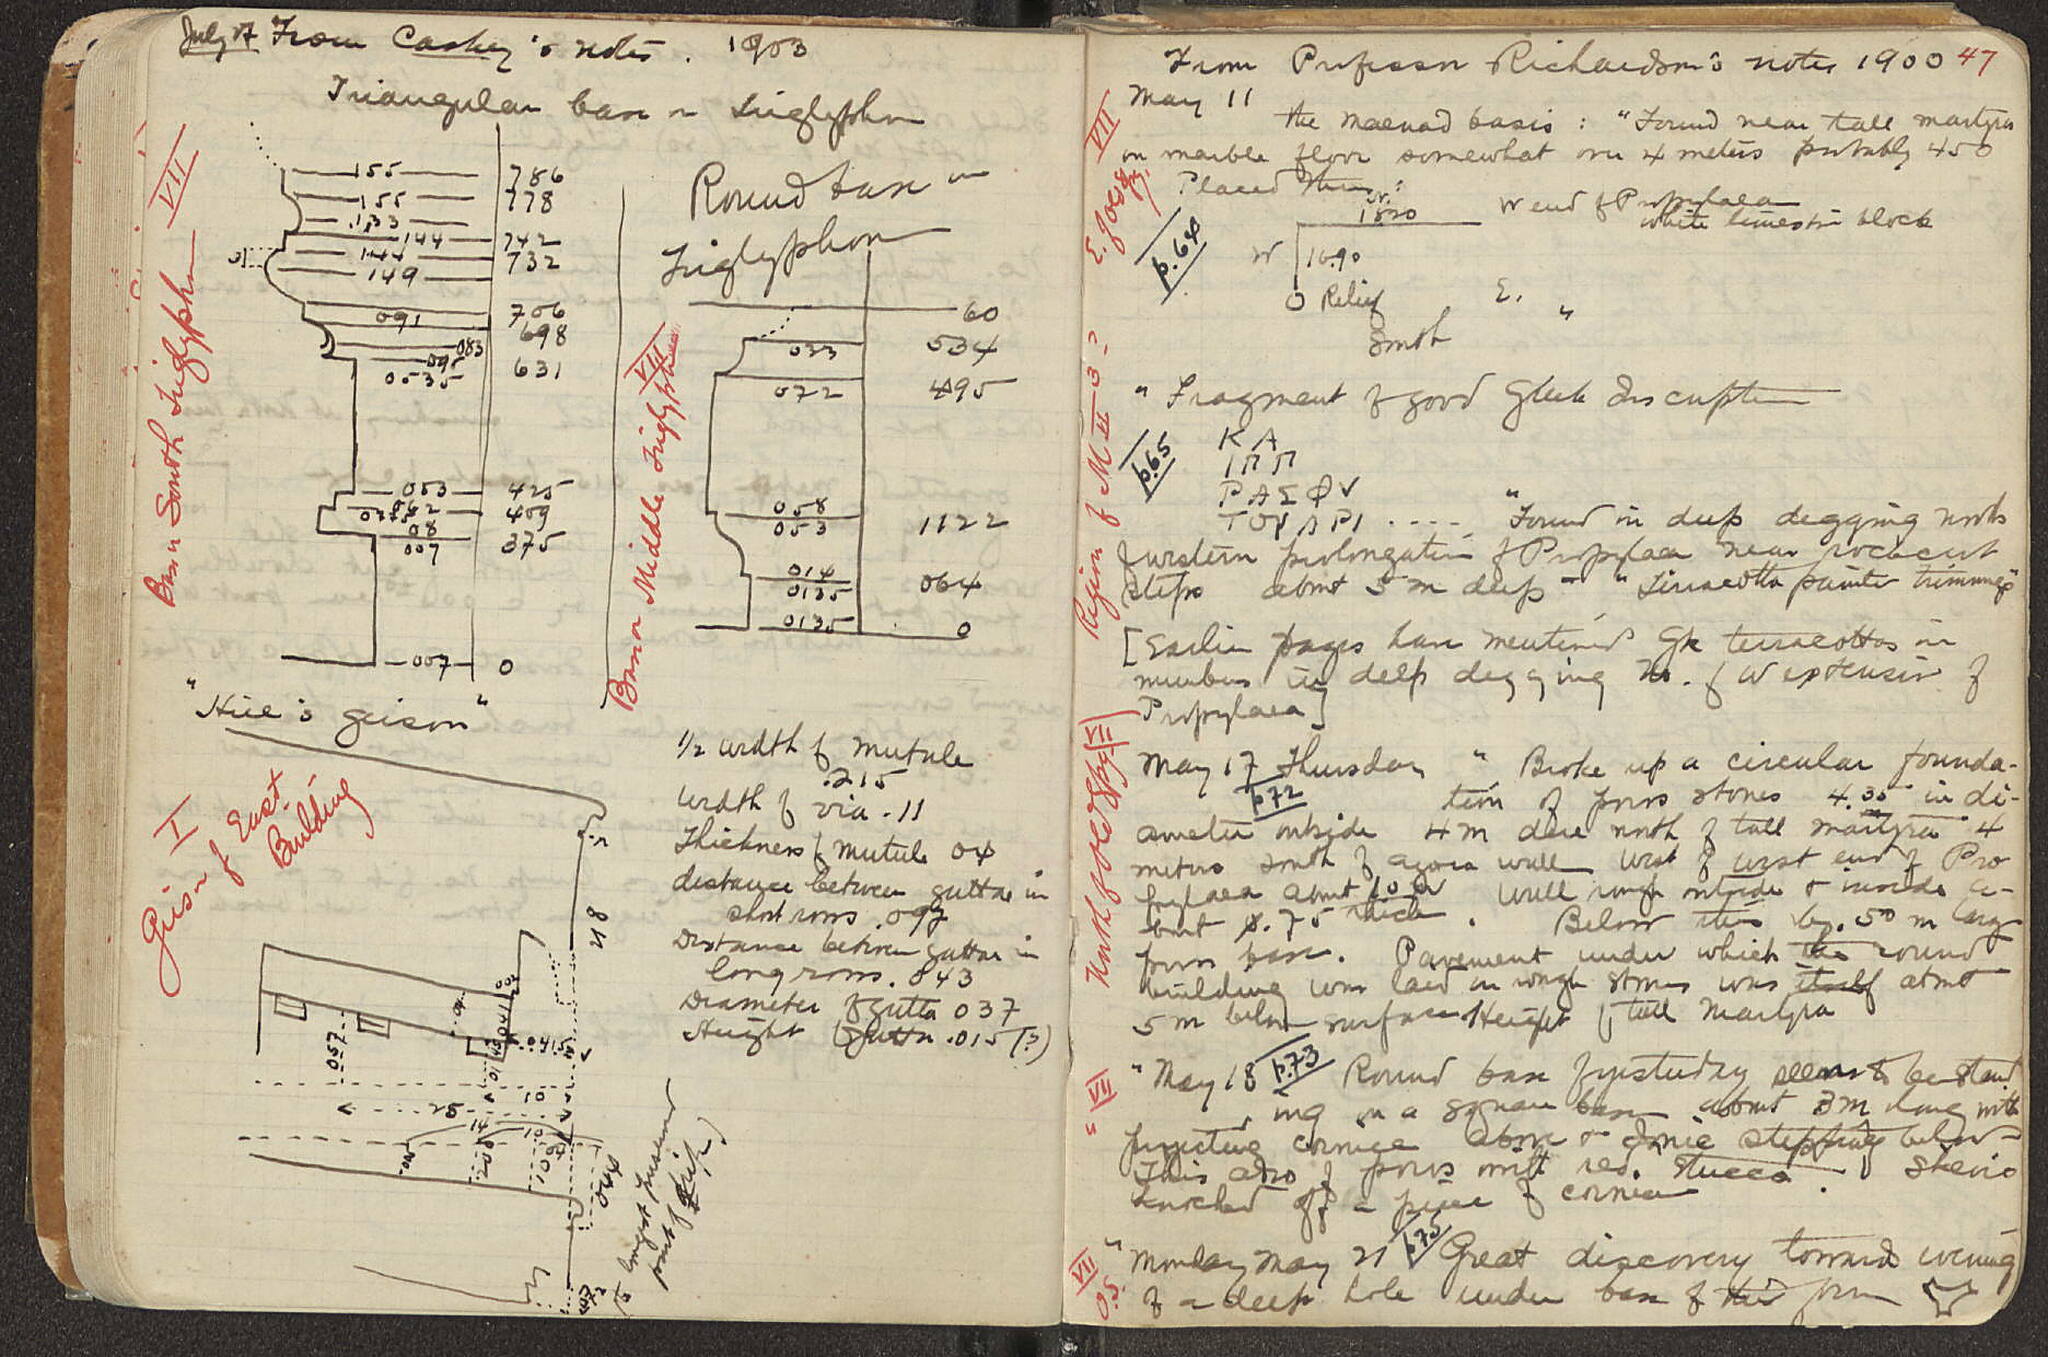 July From Caskey's notes. 1903
Triangular base on Triglyphon
VII
Base on South Triglyphon
155 786
155 778
133
144 742
144 732
149
091 706
698
083
095
0535 631
053 425
409
08
007 375
007 0
Round base on
Triglyphon
VII
Base on Middle Triglyphon
60
033 534
072 495
058
053 1122
014
0135 064
0135 0
"Hill's geison"
I
Geison of East
Building
1/2 width of mutule
.215
width of via .11
Thickness of mutule 04
distance between guttae in
short rows .097
Distance between guttae in
long rows .043
Diameter of gutta 037
Height of gutta .015 (?)
218
04
057
0415
10
25
14
10
044
to longest preserved
point of drip)
From Professor Richardson's notes 1900 47
May 11
VII
the maenad basis: "Found near tall martyra
on marble floor somewhat over 4 meters probably 450
Placed thus:
p. 64
1820 W end of Propylaea
white limestone block
W 16.90
O Relief E. "
South
Region of M II-3-?
" Fragment of good Greek Inscription
p.65
ΚΑ
ΙΠΠ
ΡΑΣΦV
ΤΟΥΑΡΙ .... "Found in deep digging north
of western prolongation of Propylaea near rockcut
steps about 5 m deep" - "Terracotta painter trimmings"
[Earlier pages have mentioned Gk terracottas in
numbers in deep digging No. of W extension of
Propylaea]
May 17 Thursday " Broke up a circular founda-
p72
tion of poros stones 4.35 in di-
ameter outside 4 m due north of tall martyra 4
meters south of agora wall west of west end of Pro
pylaea about 10 m Wall rough outside & inside a-
bout 0.75 thick. Below this by .50 m large
poros base. Pavement under which the round
building was laid on rough stones was itself about
5 m below surface Height of tall Martyra
North of Old Spg VII
" VII
"May 18 p.73 Round base of yesterday seems to be stand
ing on a square base about 3m long with
projecting cornice above & Ionic stepping below
This also of poros with red. stucco. Skevio
knocked off a piece of cornice
VII
O.S.
"Monday May 21 p75 Great discovery toward evening
of a deep hole under base of the form